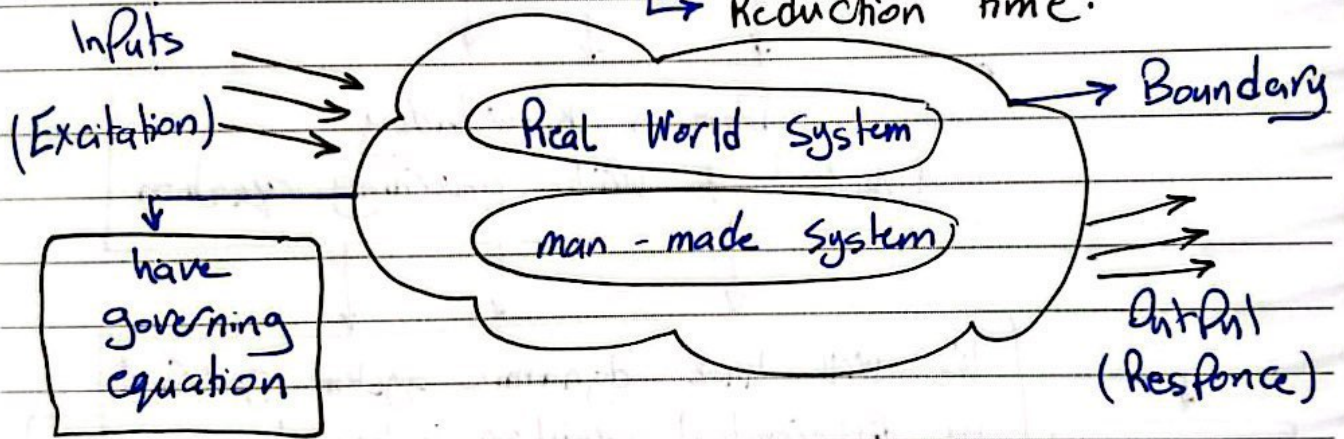 ↳ Reduction time.
Inputs
(Excitation)
Real World System
Boundary
man-made System
have
governing
equation
Output
(Responce)